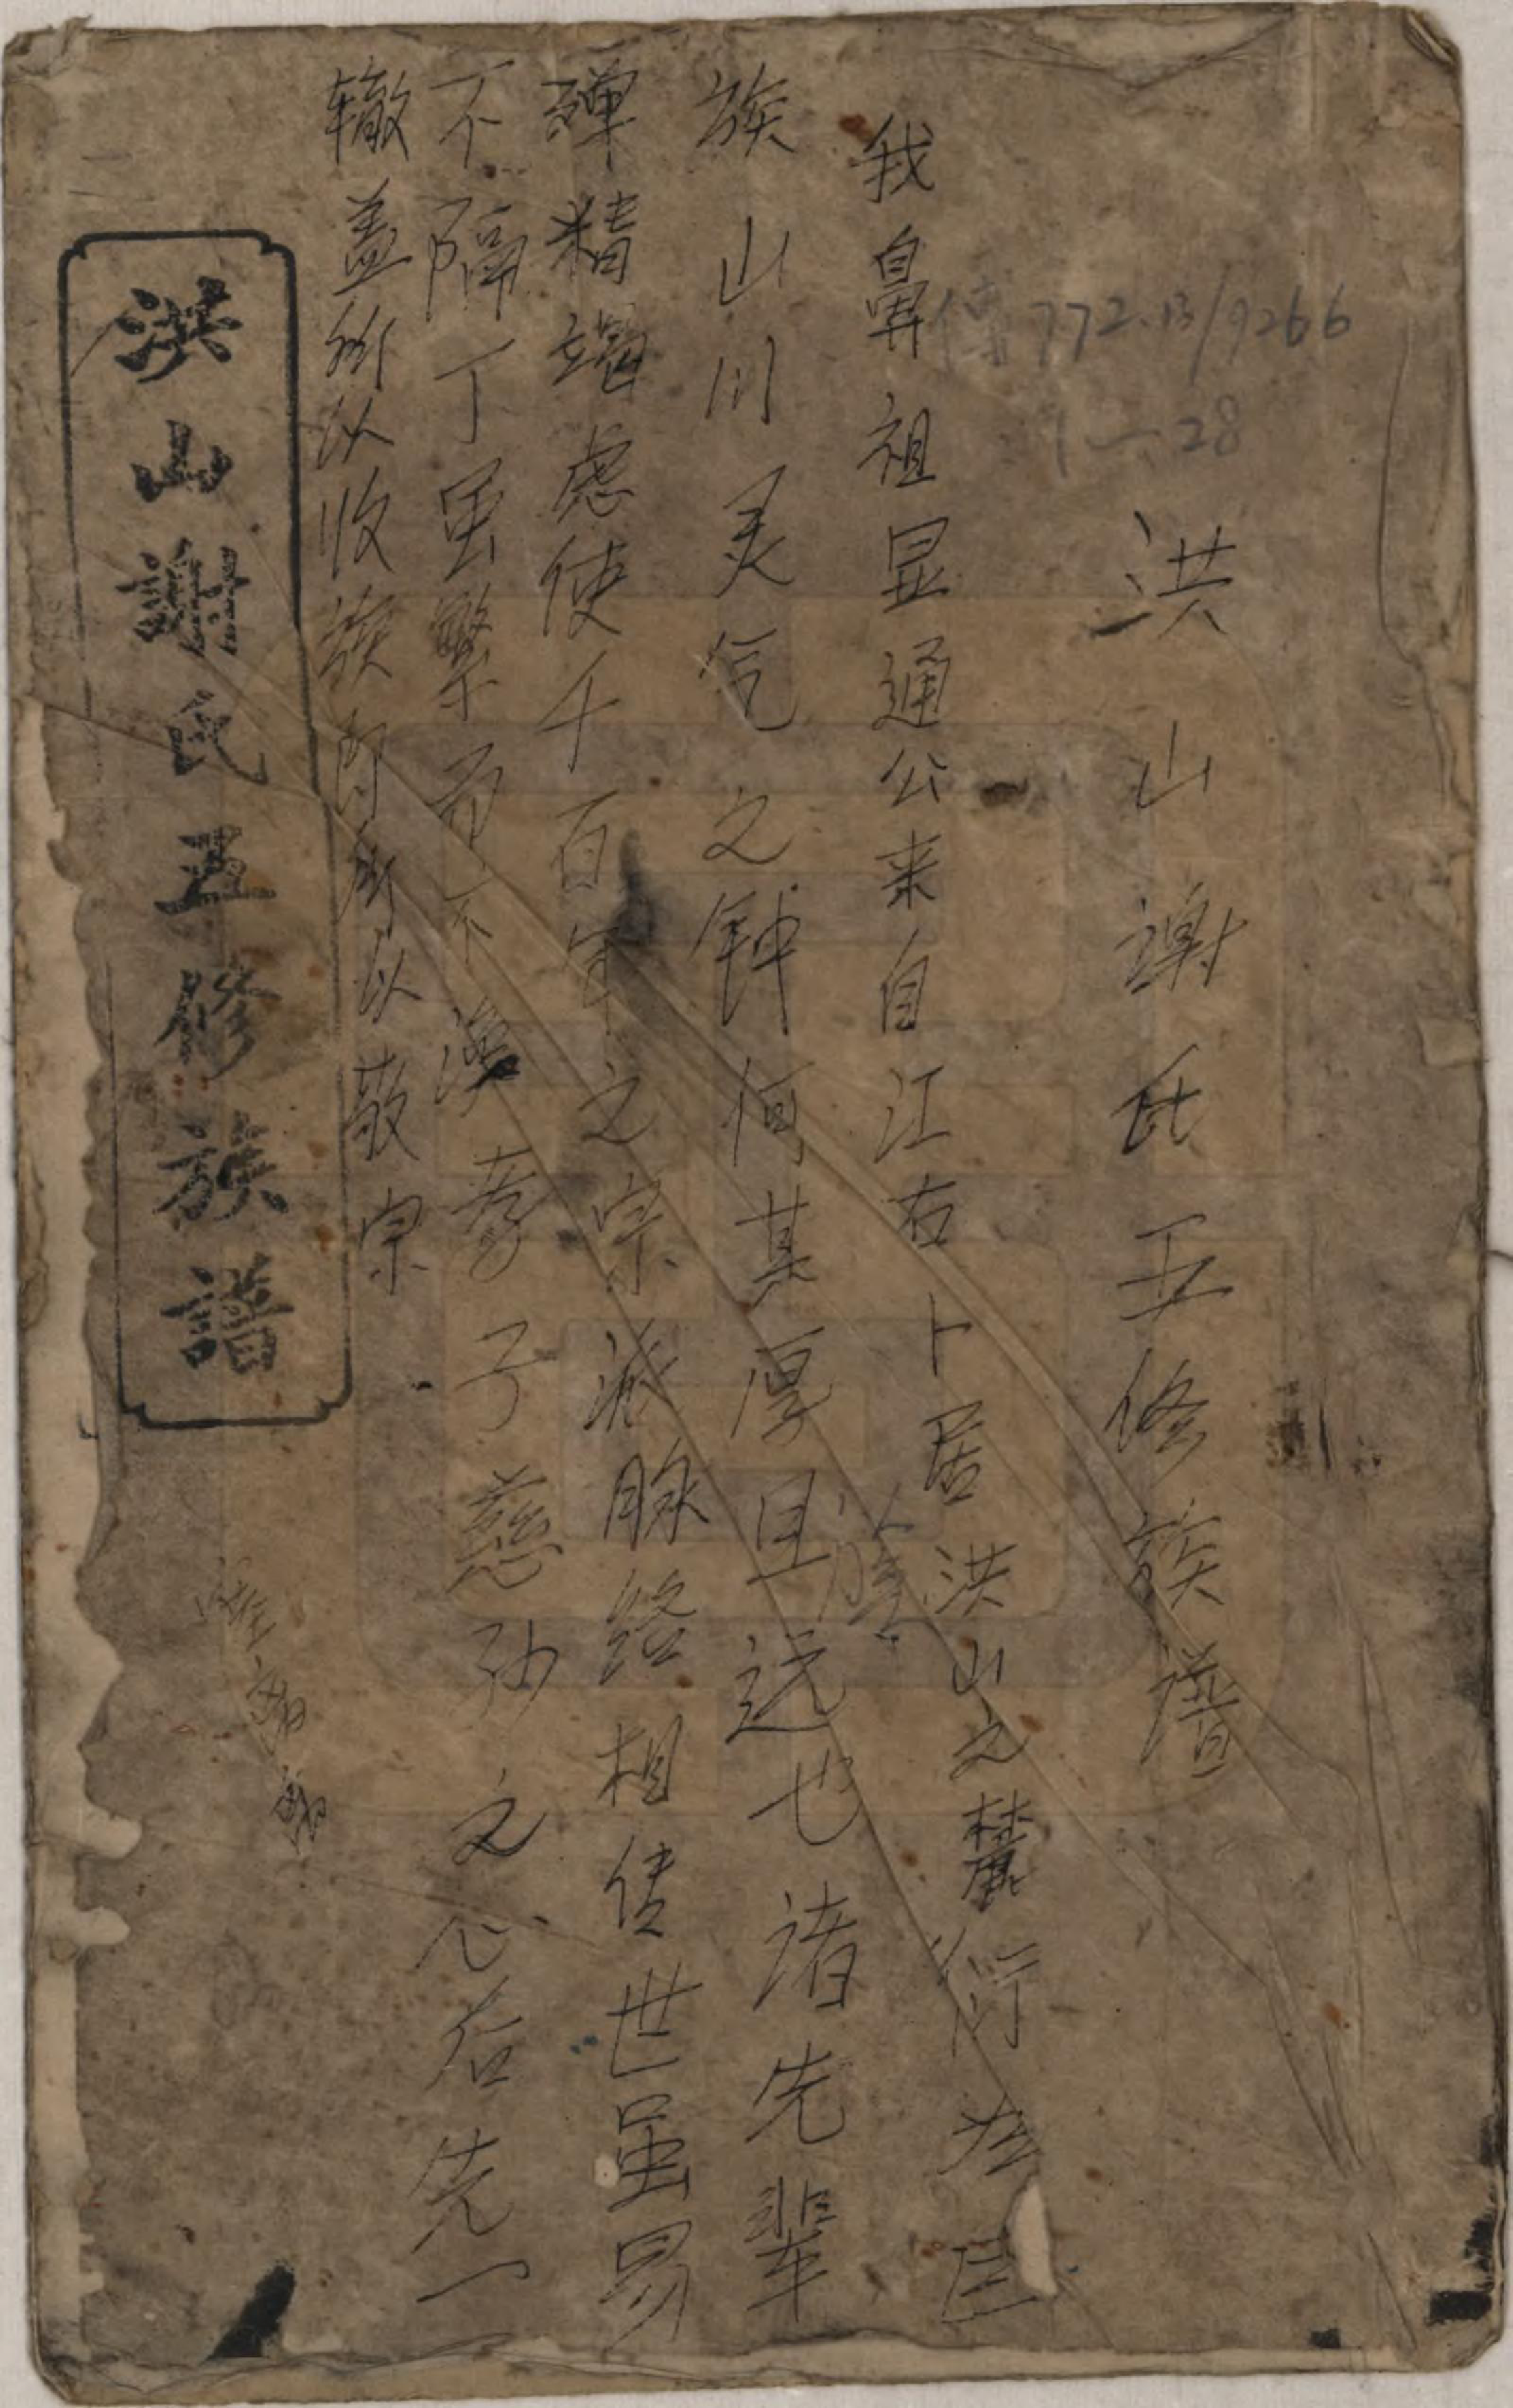 洪山謝氏五修族譜
我鼻祖显通公来自江右卜居洪山之麓衍为巨
族山川灵气之钟何其厚且远也诸先辈
殫精竭虑使千百年之宗派脉络相传世虽易
不隔丁虽繁而不渙孝子慈孙之心后先一
辙盖所以收族即所以敬宗
洪山謝氏五修族譜
772.13/9266
1—28